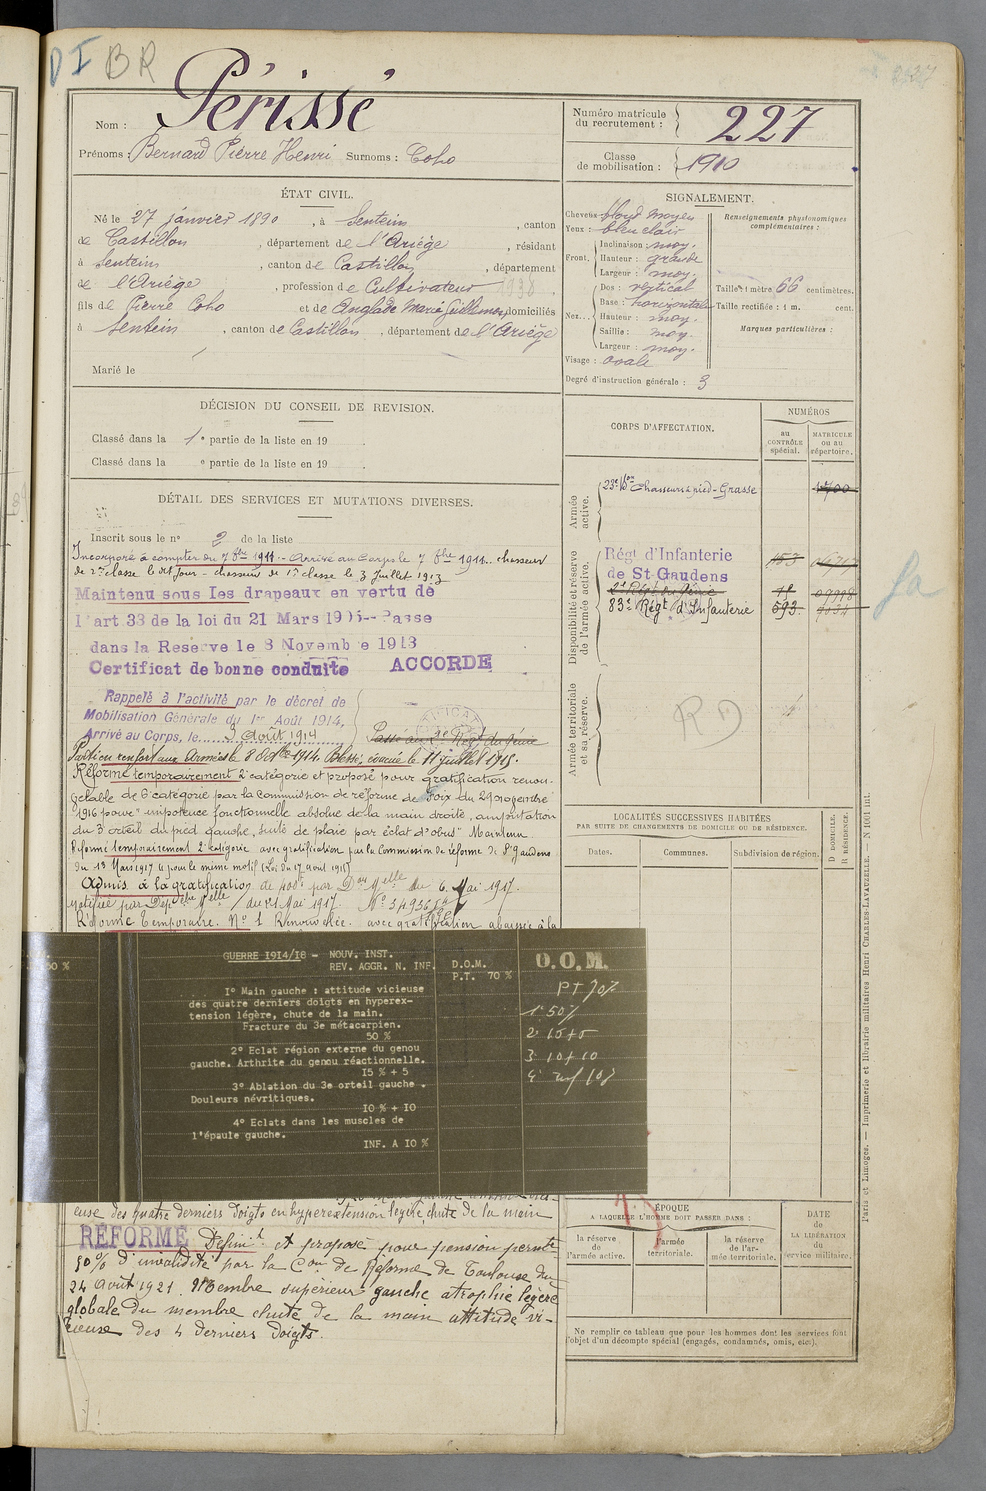 DI BR
Nom : Périssé
Prénoms : Bernard Pierre Henri Surnoms : Coho
Numéro matricule du recrutement : 227
Classe de mobilisation : 1910
ÉTAT CIVIL.
Né le 27 janvier 1890, à Sentein, canton
de Castillon, département de l'Ariège, résidant
à Sentein, canton de Castillon, département
de l'Ariège, profession de Cultivateur
fils de Pierre Coho et de Anglade Marie Guillemon domiciliés
à Sentein, canton de Castillon, département de l'Ariège
Marié le
SIGNALEMENT.
Cheveux blond moyen
Yeux : bleu clair
Front. Inclinaison : moy.
Hauteur : grande
Largeur : moy.
Nez... Dos : vertical
Base : horizontale
Hauteur : moy.
Saillie : moy.
Largeur : moy.
Visage : ovale
Renseignements physionomiques complémentaires :
Taille : 1 mètre 66 centimètres.
Taille rectifiée : 1 m. cent.
Marques particulières :
Degré d'instruction générale : 3
DÉCISION DU CONSEIL DE REVISION.
Classé dans la 1e partie de la liste en 19 .
Classé dans la e partie de la liste en 19 .
CORPS D'AFFECTATION.
NUMÉROS
au CONTRÔLE spécial.
MATRICULE ou au répertoire.
Armée active.
23e Bon Chasseurs à pied - Grasse
Disponibilité et réserve de l'armée active.
Régt d'Infanterie
de St Gaudens
153
2e Régt du Génie
83e Régt d'Infanterie 593
Armée territoriale et sa réserve.
RD
DÉTAIL DES SERVICES ET MUTATIONS DIVERSES.
Inscrit sous le n° 2 de la liste
Incorporé à compter du 7 8bre 1911. - Arrivé au Corps le 7 8bre 1911. chasseur
de 2me classe le dit jour - chasseur de 1re classe le 3 Juillet 1913
Maintenu sous les drapeaux en vertu de
l'art 33 de la loi du 21 Mars 1905 -- Passe
dans la Réserve le 8 Novembre 1913
Certificat de bonne conduite ACCORDÉ
Rappelé à l'activité par le décret de
Mobilisation Générale du 1er Août 1914,
Arrivé au Corps, le 3 Août 1914
Passé au 2e Régt du Génie
Parti en renfort aux Armées le 8 Octbre 1914. Blessé, évacué le 11 juillet 1915.
Réformé temporairement 2e catégorie et proposé pour gratification renou-
velable de 6e catégorie par la commission de réforme de Foix du 29 novembre
1916 pour "impotence fonctionnelle absolue de la main droite, amputation
du 3e orteil du pied gauche, suite de plaie par éclat d'obus" Maintenu
Réformé temporairement 2e catégorie avec gratification par la Commission de réforme de St Gaudens
du 13 Mars 1917 pour le même motif (Loi du 17 août 1915)
Admis à la gratification de 400f par Don Melle du 6 Mai 1917.
notifiée par Dépêche Melle du 21 Mai 1917.
Réforme temporaire. N° 1 Renouvelée. avec gratification abaissée à la
GUERRE 1914/18 - NOUV. INST.
REV. AGGR. N. INF.
D.O.M.
P.T. 70 %
I° Main gauche : attitude vicieuse
des quatre derniers doigts en hyperex-
tension légère, chute de la main.
Fracture du 3e métacarpien.
50 %
2° Eclat région externe du genou
gauche. Arthrite du genou réactionnelle.
I5 % + 5
3° Ablation du 3e orteil gauche.
Douleurs névritiques.
IO % + IO
4° Eclats dans les muscles de
l'épaule gauche.
INF. A IO %
50 %
D.O.M.
PT 70%
1° 50%
2° 15+5
3° 10+10
4° inf 10%
LOCALITÉS SUCCESSIVES HABITÉES
PAR SUITE DE CHANGEMENTS DE DOMICILE OU DE RÉSIDENCE.
Dates. Communes. Subdivision de région. D DOMICILE. R RÉSIDENCE.
euse des quatre derniers doigts en hyperextension légère, chute de la main
RÉFORMÉ Définit. et proposé pour pension perm.te
50% d'invalidité par la Con de Réforme de Toulouse du
24 Août 1921. Membre supérieur gauche atrophie légère
globale du membre chute de la main attitude vi-
cieuse des 4 derniers doigts.
ÉPOQUE
A LAQUELLE L'HOMME DOIT PASSER DANS :
la réserve de l'armée active.
l'armée territoriale.
la réserve de l'armée territoriale.
DATE de LA LIBÉRATION du service militaire.
Ne remplir ce tableau que pour les hommes dont les services font
l'objet d'un décompte spécial (engagés, condamnés, omis, etc.).
Paris et Limoges. — Imprimerie et librairie militaires Henri CHARLES-LAVAUZELLE. — N 1001 int.